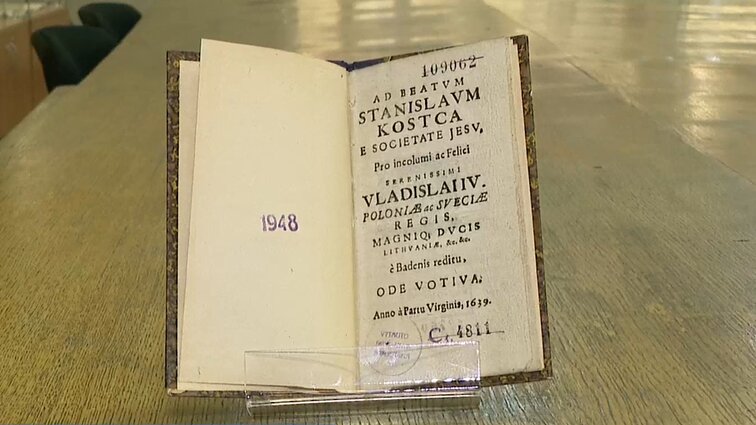 1948
109062
AD BEATVM
STANISLAVM
KOSTCA
E SOCIETATE JESV,
Pro incolumi ac Felici
SERENISSIMI
VLADISLAI IV.
POLONIÆ ac SVECIÆ
REGIS,
MAGNIQ; DVCIS
LITHVANIÆ, &c. &c.
è Badenis reditu,
ODE VOTIVA;
Anno à Partu Virginis, 1639.
C. 4811
VYTAUTO